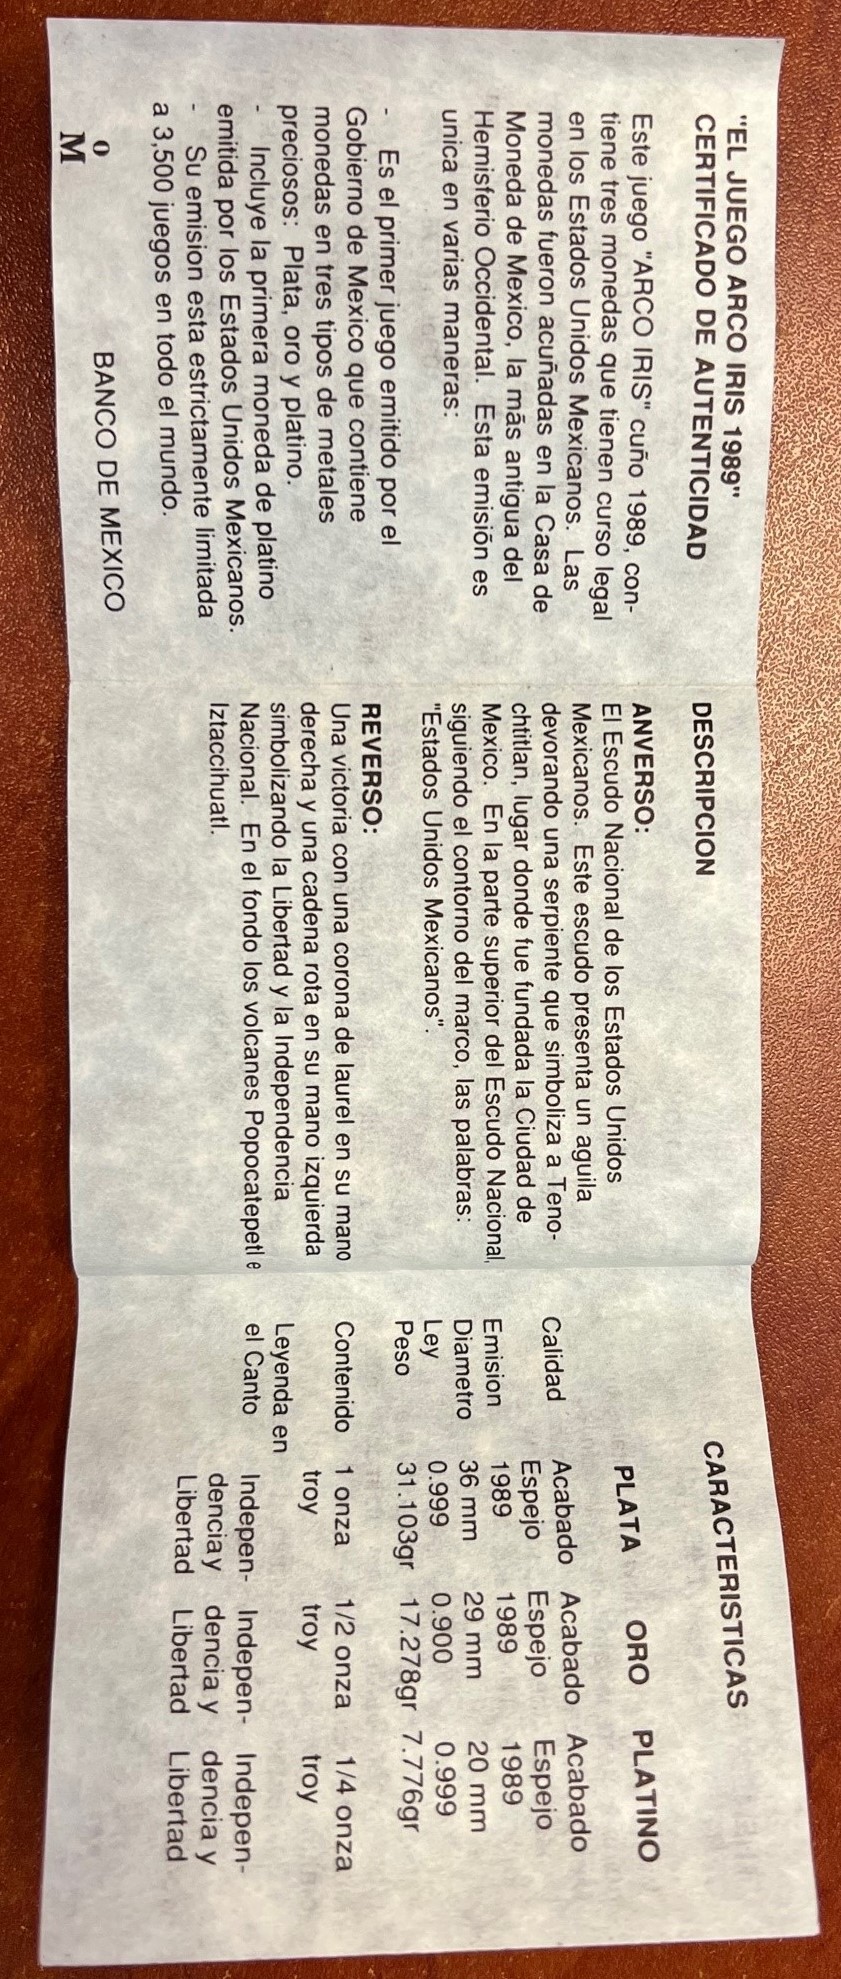 "EL JUEGO ARCO IRIS 1989"
CERTIFICADO DE AUTENTICIDAD
Este juego "ARCO IRIS" cuño 1989, con-
tiene tres monedas que tienen curso legal
en los Estados Unidos Mexicanos. Las
monedas fueron acuñadas en la Casa de
Moneda de Mexico, la mās antigua del
Hemisferio Occidental. Esta emisiōn es
unica en varias maneras:
- Es el primer juego emitido por el
Gobierno de Mexico que contiene
monedas en tres tipos de metales
preciosos: Plata, oro y platino.
- Incluye la primera moneda de platino
emitida por los Estados Unidos Mexicanos.
- Su emision esta estrictamente limitada
a 3,500 juegos en todo el mundo.
o
M
BANCO DE MEXICO
DESCRIPCION
ANVERSO:
El Escudo Nacional de los Estados Unidos
Mexicanos. Este escudo presenta un aguila
devorando una serpiente que simboliza a Teno-
chtitlan, lugar donde fue fundada la Ciudad de
Mexico. En la parte superior del Escudo Nacional,
siguiendo el contorno del marco, las palabras:
"Estados Unidos Mexicanos".
REVERSO:
Una victoria con una corona de laurel en su mano
derecha y una cadena rota en su mano izquierda
simbolizando la Libertad y la Independencia
Nacional. En el fondo los volcanes Popocatepetl e
Iztaccihuatl.
CARACTERISTICAS
PLATA ORO PLATINO
Acabado Acabado Acabado
Calidad Espejo Espejo Espejo
1989 1989 1989
Emision 36 mm 29 mm 20 mm
Diametro 0.999 0.900 0.999
Ley 31.103gr 17.278gr 7.776gr
Peso
Contenido 1 onza 1/2 onza 1/4 onza
troy troy troy
Leyenda en
el Canto Indepen- Indepen- Indepen-
dencia y dencia y dencia y
Libertad Libertad Libertad